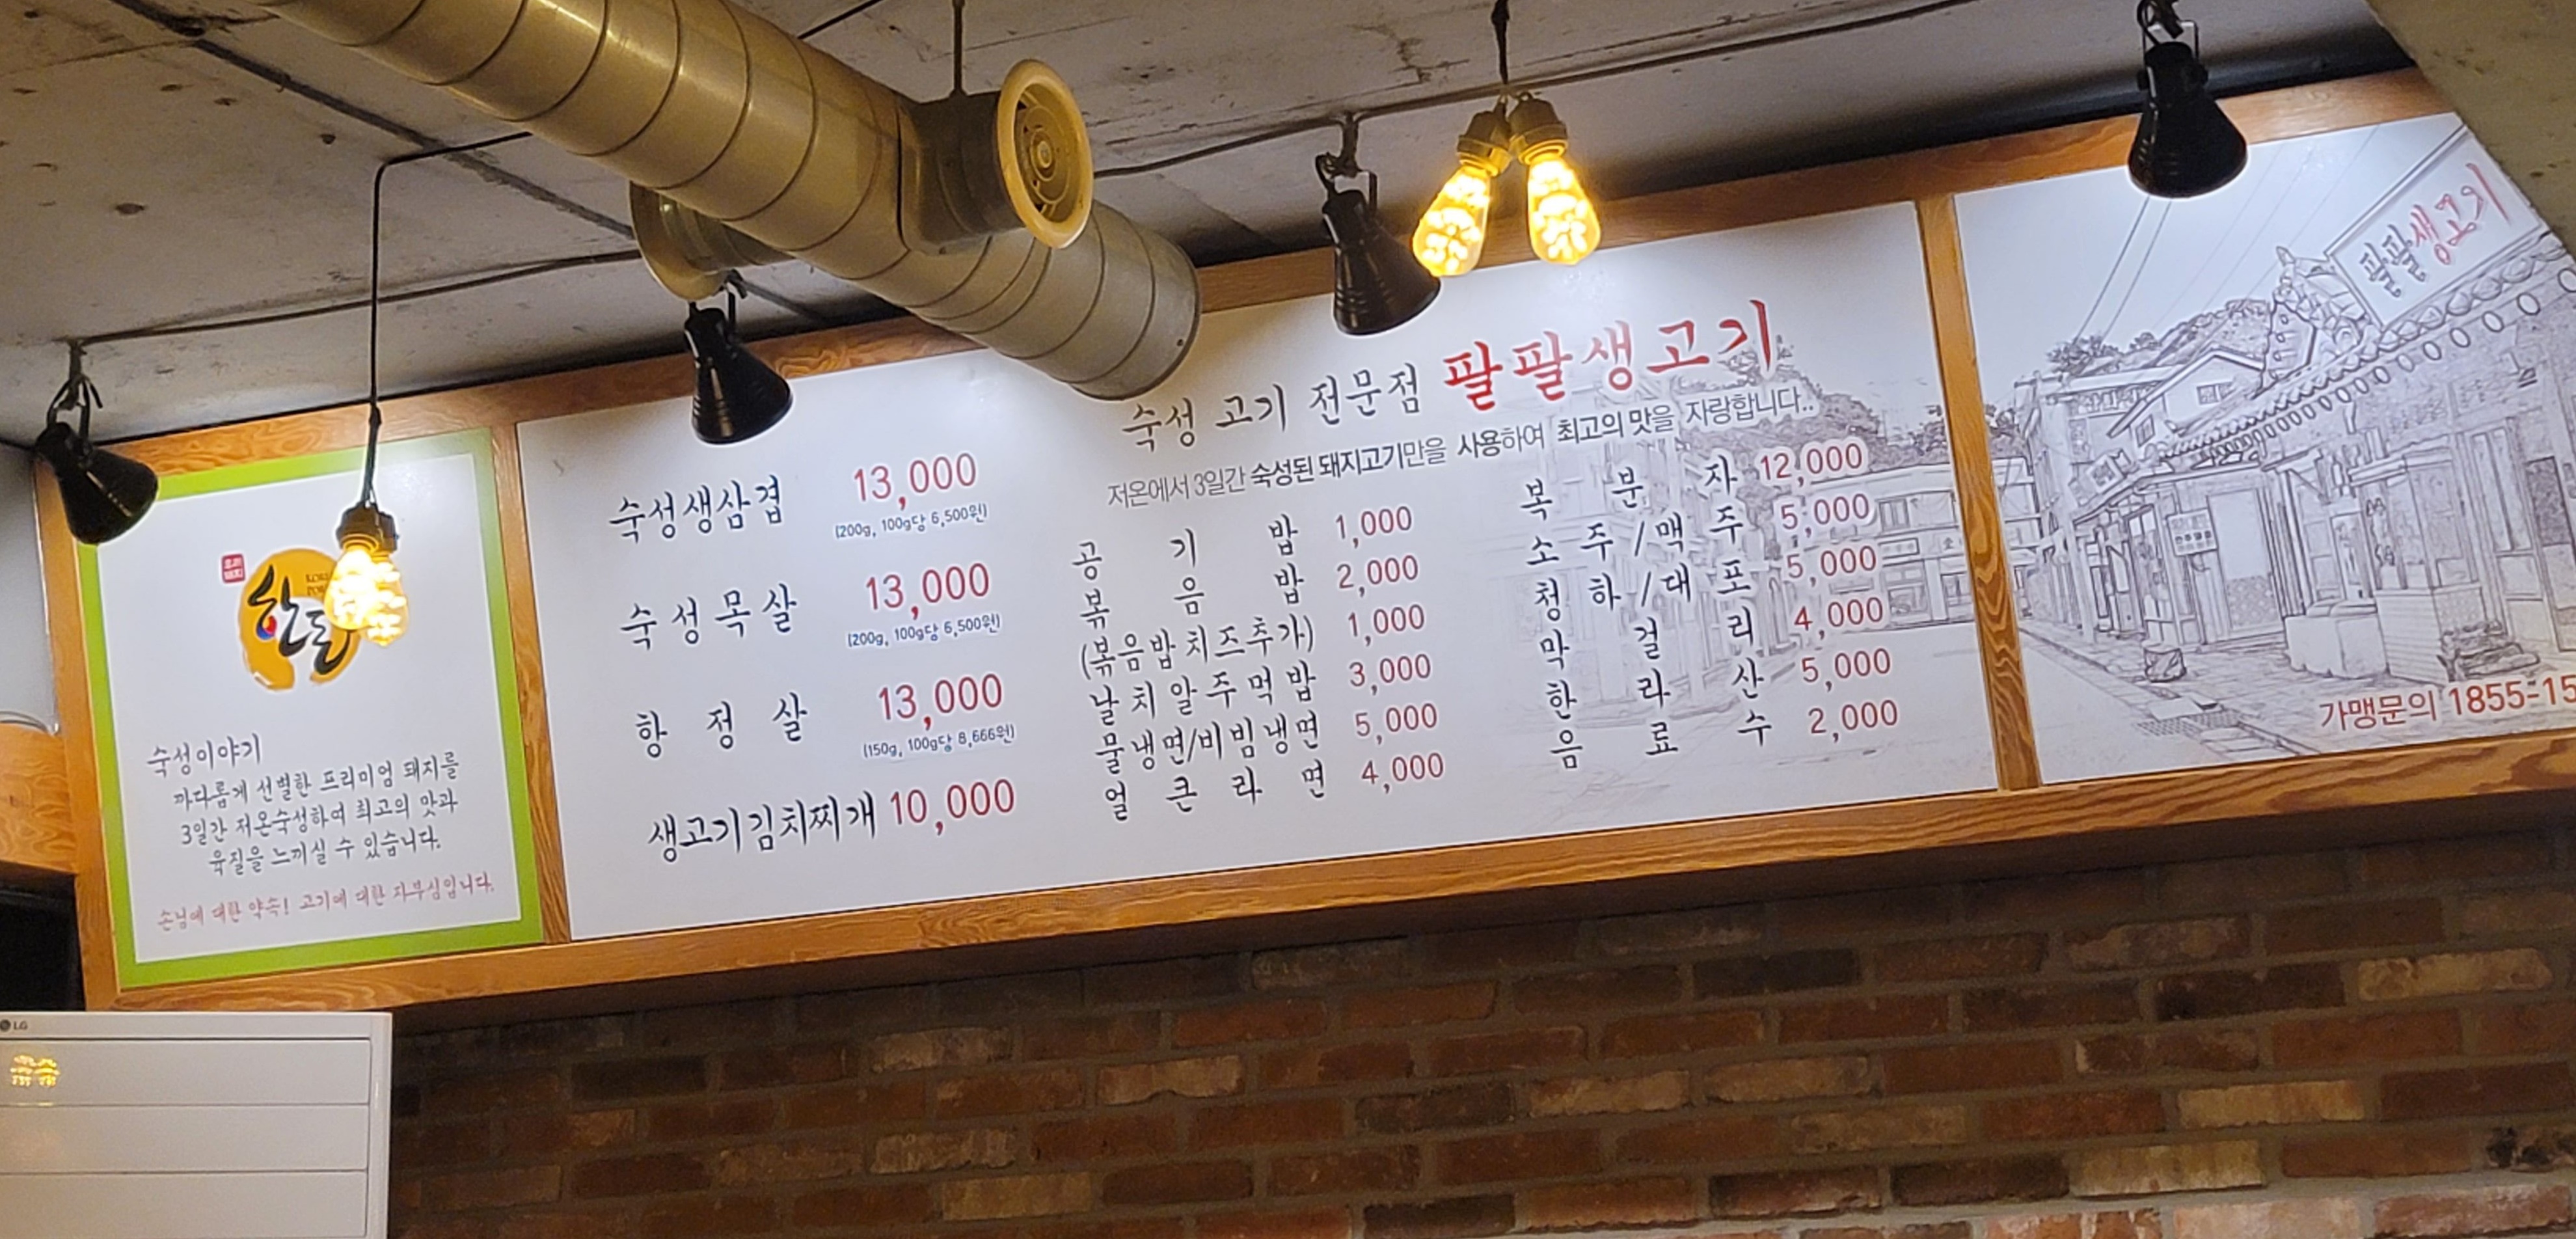 한돈
숙성이야기
까다롭게 선별한 프리미엄 돼지를
3일간 저온숙성하여 최고의 맛과
육질을 느끼실 수 있습니다.
손님에 대한 약속! 고기에 대한 자부심입니다.
숙성 고기 전문점 팔팔생고기
저온에서 3일간 숙성된 돼지고기만을 사용하여 최고의 맛을 자랑합니다..
숙성생삼겹 13,000
(200g, 100g당 6,500원)
숙성목살 13,000
(200g, 100g당 6,500원)
항정살 13,000
(150g, 100g당 8,666원)
생고기김치찌개 10,000
공기밥 1,000
볶음밥 2,000
(볶음밥치즈추가) 1,000
날치알주먹밥 3,000
물냉면/비빔냉면 5,000
얼큰라면 4,000
복분자 12,000
소주/맥주 5,000
청하/대포 5,000
막걸리 4,000
한라산 5,000
음료수 2,000
팔팔생고기
가맹문의 1855-15
LG